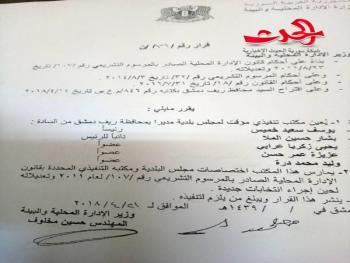 الجمهورية العربية السورية
وزارة الإدارة المحلية والبيئة
الحدث
شبكة سورية الحدث الإخبارية
قرار رقم / /ن
وزير الإدارة المحلية والبيئة
بناء على أحكام قانون الإدارة المحلية الصادر بالمرسوم التشريعي رقم /١٠٧/ تاريخ
وتعديلاته
وعلى أحكام المرسوم التشريعي رقم تاريخ
وعلى أحكام القانون رقم /١٨/ تاريخ
وعلى اقتراح السيد محافظ ريف دمشق بكتابه رقم تاريخ
يقرر مايلي :
يعين مكتب تنفيذي مؤقت لمجلس بلدية ديرا بمحافظة ريف دمشق من السادة :
يوسف سعيد خميس رئيساً
بشار حسين الملا نائباً للرئيس
يحيى زكريا عرابي عضواً
عزيزة عمر حسن عضواً
وليد محمد درة عضواً
يمارس هذا المكتب اختصاصات مجلس البلدية ومكتبه التنفيذي المحددة بقانون
الإدارة المحلية الصادر بالمرسوم التشريعي رقم /١٠٧/ لعام ٢٠١١ وتعديلاته
لحين إجراء انتخابات جديدة .
ينشر هذا القرار ويبلغ من يلزم لتنفيذه .
دمشق في / /١٤٣٩ هـ الموافق لـ ٢٠١٨/٤/
وزير الإدارة المحلية والبيئة
المهندس حسين مخلوف